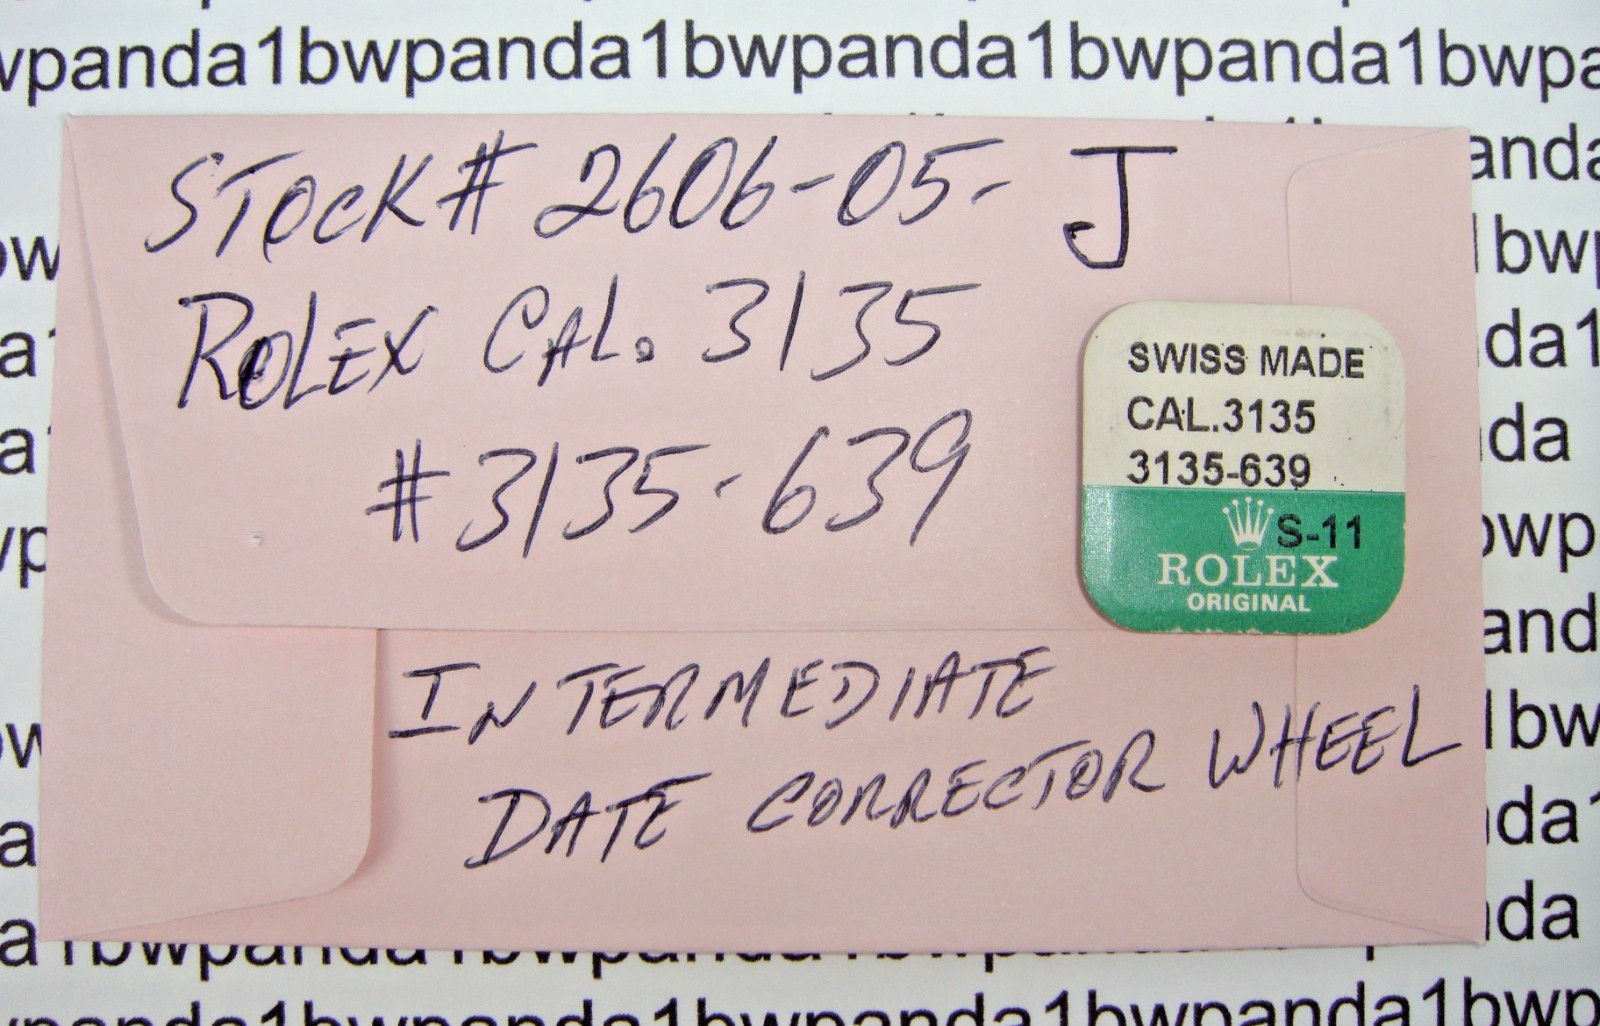 wpanda1bwpanda1bwpanda1bwpanda1bwpa
STOCK# 2606-05- J
ROLEX CAL. 3135
#3135-639
SWISS MADE
CAL.3135
3135-639
S-11
ROLEX
ORIGINAL
INTERMEDIATE
DATE CORRECTOR WHEEL
anda
1bwp
da1
da
bwp
and
1bw
da1
da
a1bwpanda1bwpanda1bwpanda1bwpanda
panda1bwpanda1bwpanda1bwpanda1bwp